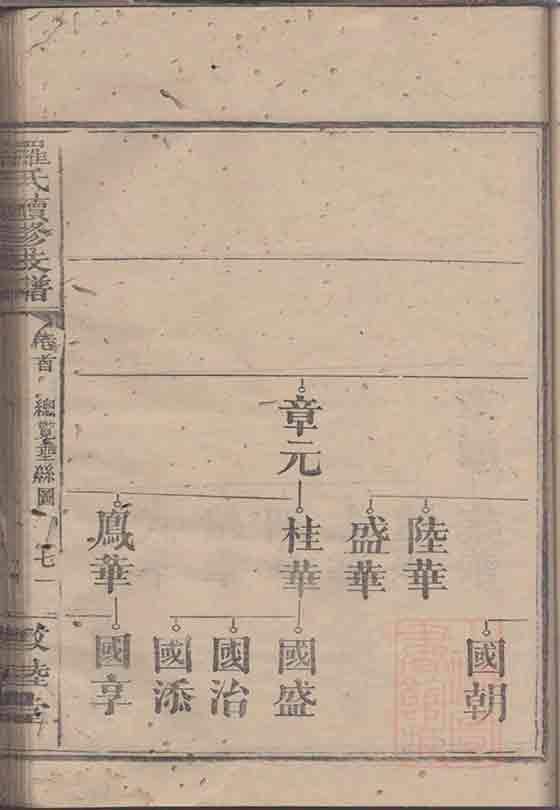 章元
陸華
盛華
桂華
鳳華
國朝
國盛
國治
國添
國享
羅氏續修支譜
卷首 總覽垂絲圖 七一
敦陸堂